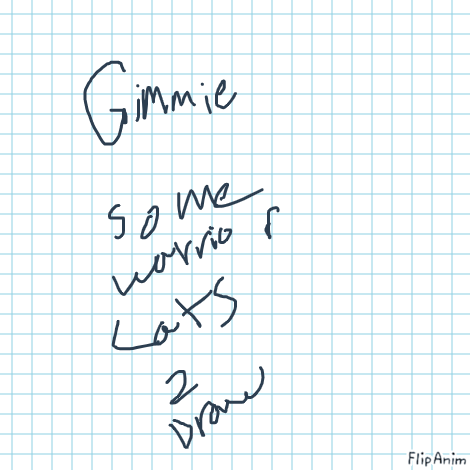 Gimmie
some
warrior
cats
2
Draw
FlipAnim